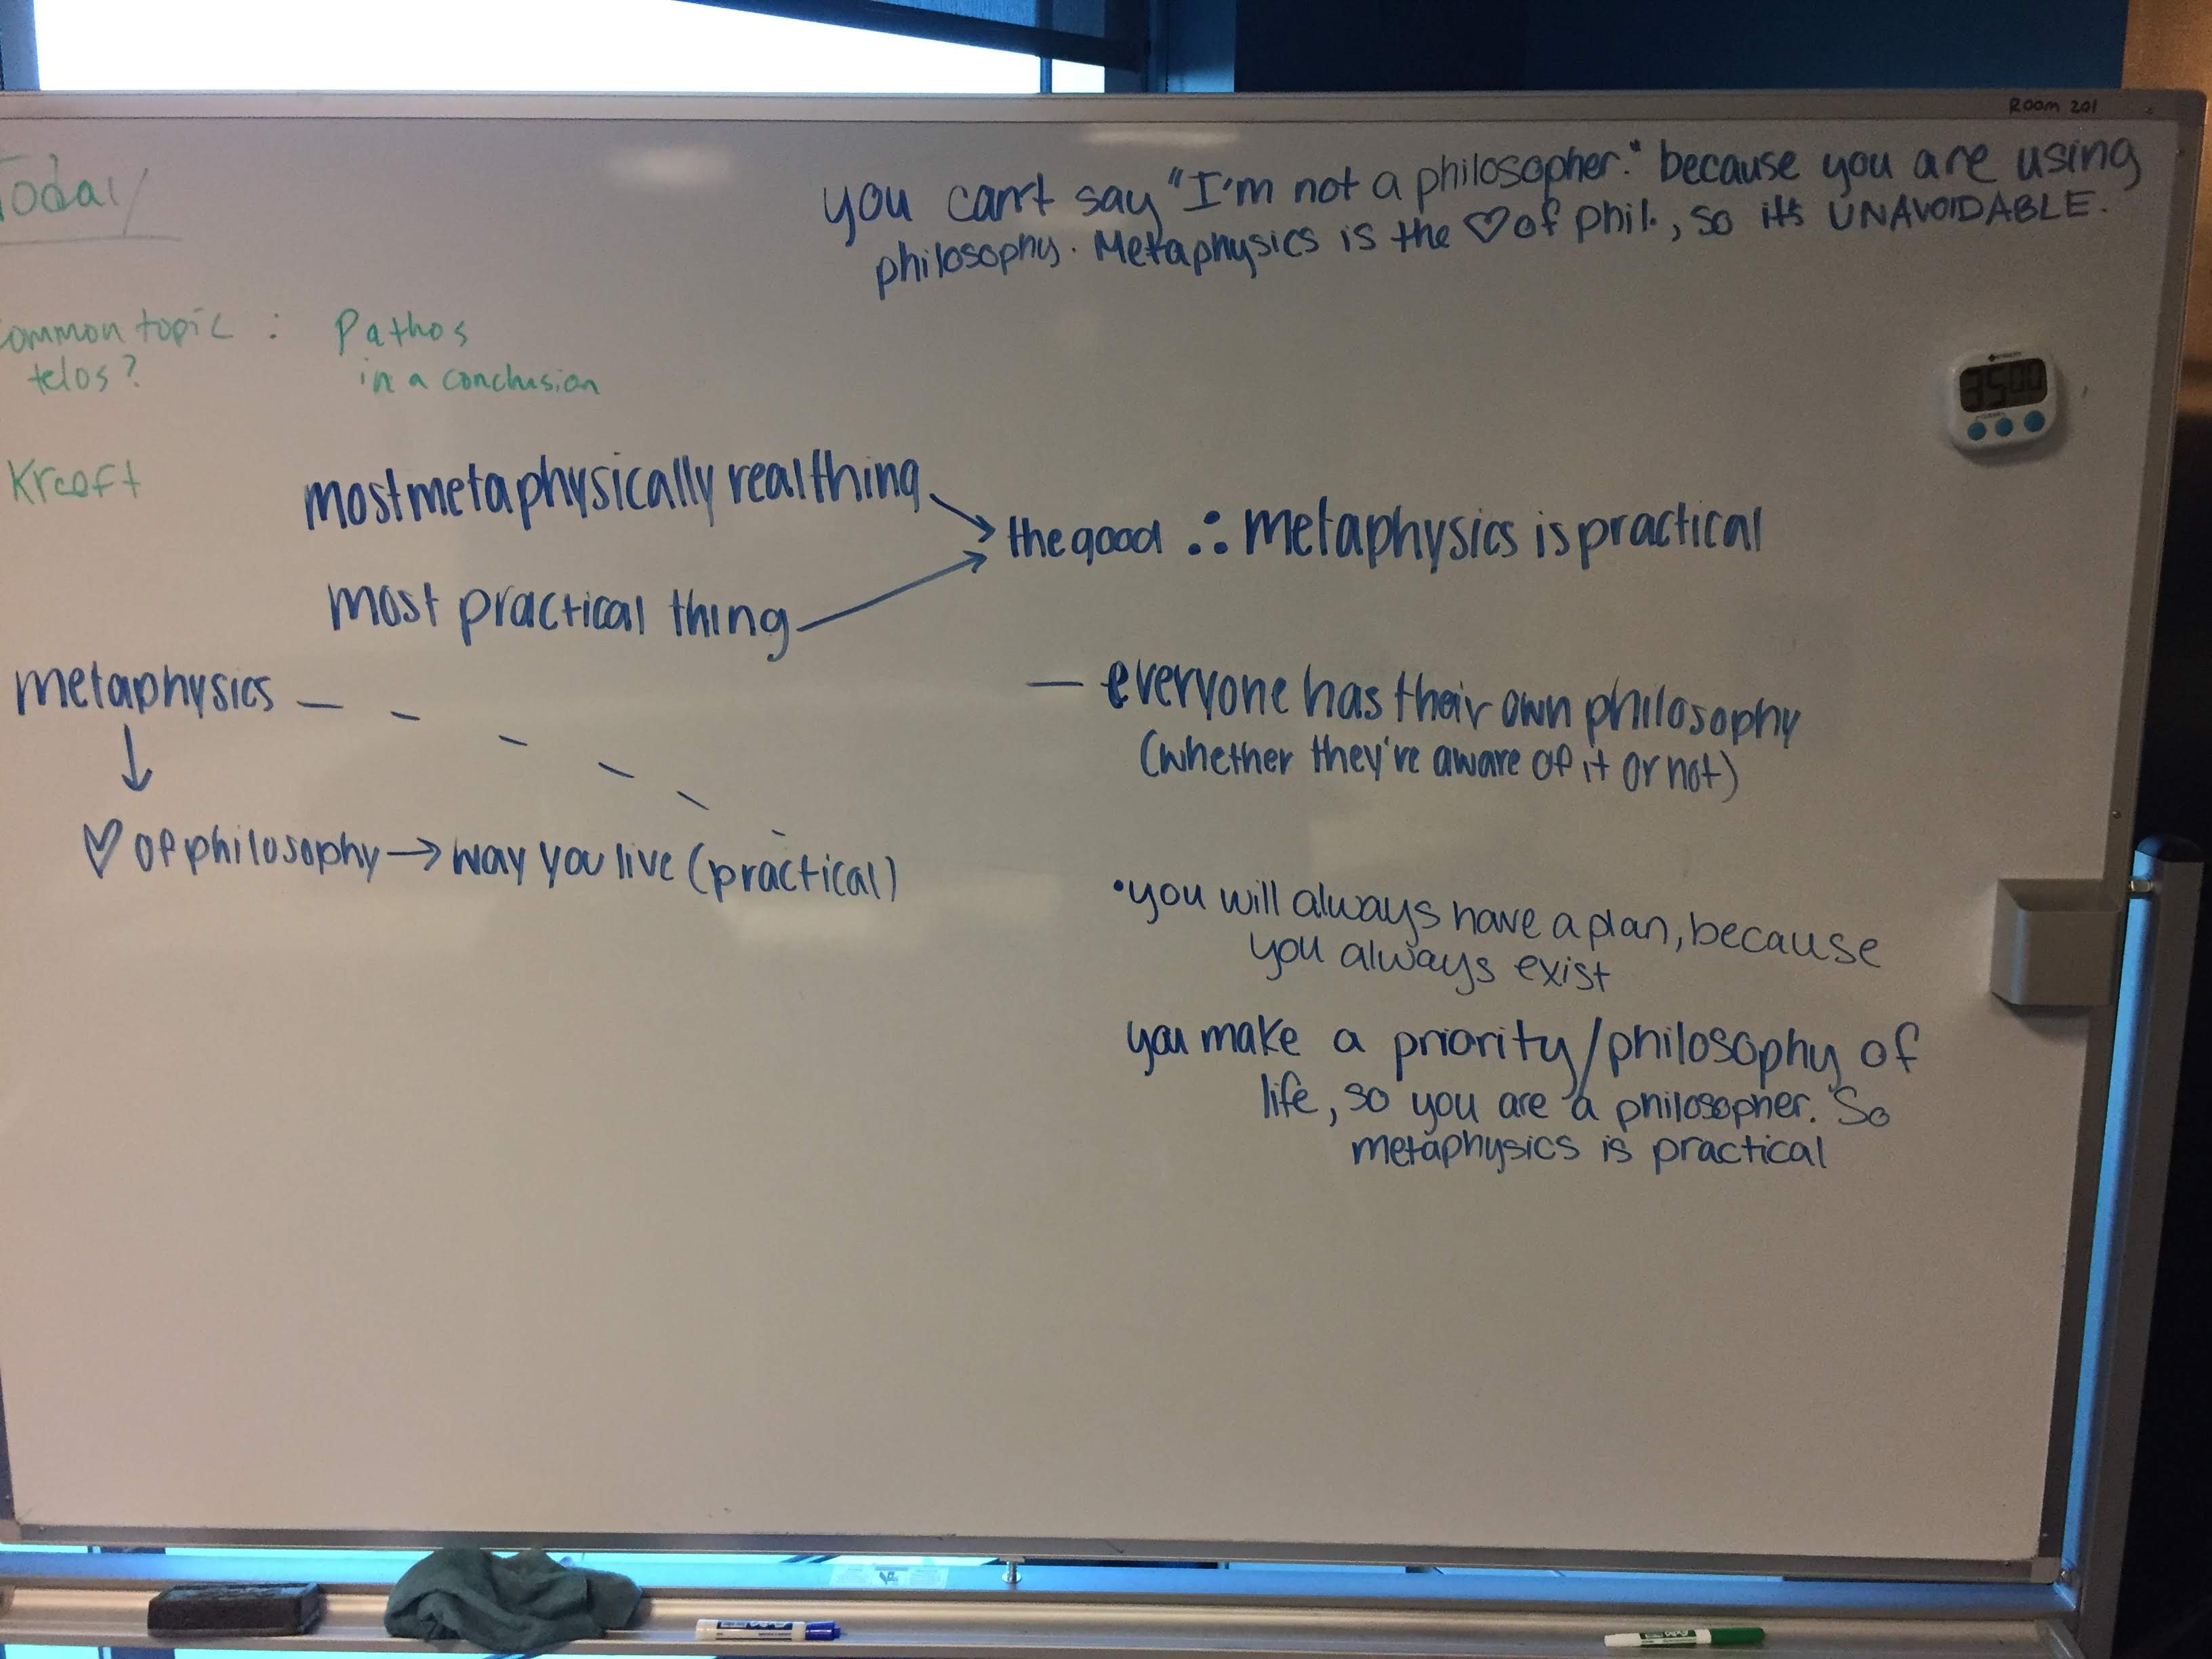 Room 201
Today
you can't say "I'm not a philosopher." because you are using
philosophy. Metaphysics is the ♡ of phil., so it's UNAVOIDABLE.
Common topic : Pathos
telos? in a conclusion
35 00
Kreeft
most metaphysically real thing
the good ∴ metaphysics is practical
most practical thing
metaphysics
♡ of philosophy → way you live (practical)
— everyone has their own philosophy
(whether they're aware of it or not)
• you will always have a plan, because
you always exist
you make a priority/philosophy of
life, so you are a philosopher. So
metaphysics is practical
EXPO